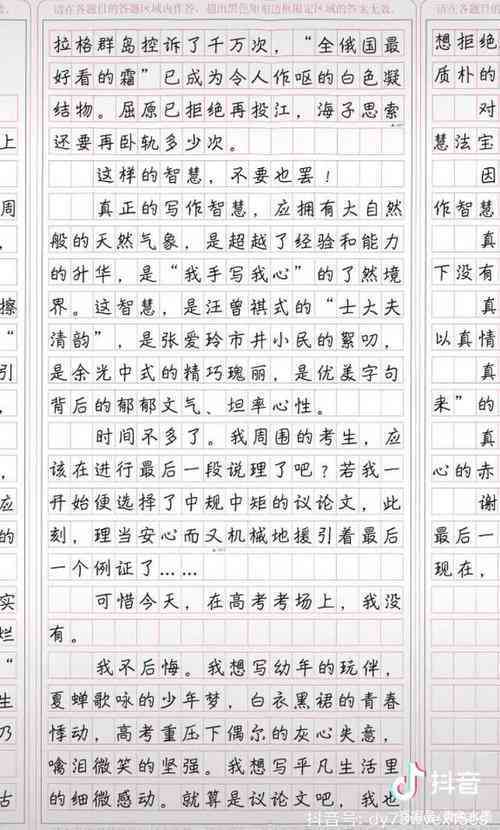 请在各题目的答题区域内作答，超出黑色矩形边框限定区域的答案无效。
拉格群岛控诉了千万次，“全俄国最
好看的霜”已成为令人作呕的白色凝
结物。屈原已拒绝再投江，海子思索
还要再卧轨多少次。
这样的智慧，不要也罢！
真正的写作智慧，应拥有大自然
般的天然气象，是超越了经验和能力
的升华，是“我手写我心”的了然境
界。这智慧，是汪曾祺式的“士大夫
清韵”，是张爱玲市井小民的絮叨，
是余光中式的精巧瑰丽，是优美字句
背后的郁郁文气、坦率心性。
时间不多了。我周围的考生，应
该在进行最后一段说理了吧？若我一
开始便选择了中规中矩的议论文，此
刻，理当安心而又机械地援引着最后
一个例证了……
可惜今天，在高考考场上，我没
有。
我不后悔。我想写幼年的玩伴，
夏蝉歌咏的少年梦，白衣黑裙的青春
悸动，高考重压下偶尔的灰心失意，
噙泪微笑的坚强。我想写平凡生活里
的细微感动。就算是议论文吧，我也
上
周
，
擦
“
引
，
应
的
实
烂
“
生
乃
古
请在各题目的
想拒绝
质朴的
对
慧法宝
因
作智慧
真
下没有
真
以真情
真
来”的
真
心的赤
谢
最后一
现在，
抖音
抖音号：